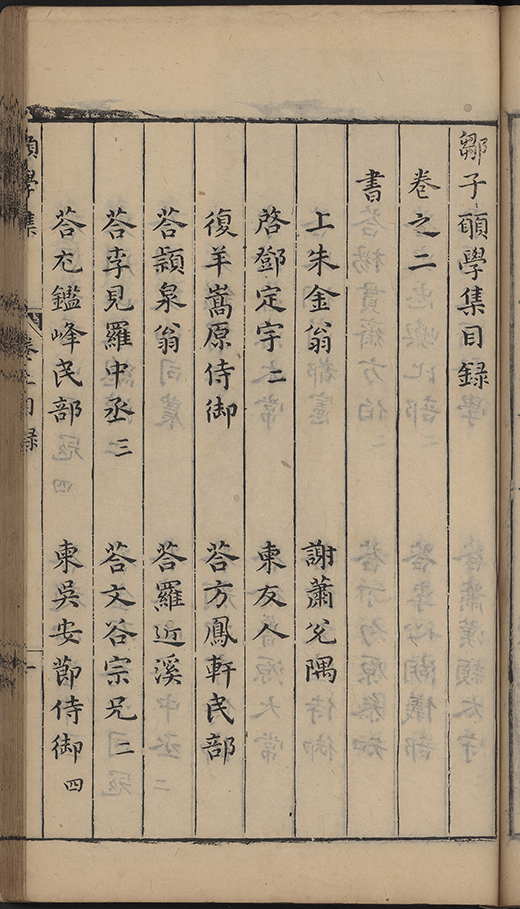 鄒子願學集目錄
卷之二
書
上朱金翁
謝蕭兌隅
啓鄧定宇 二
柬友人
復羊嵩原侍御
荅方鳳軒民部
荅潁泉翁
荅羅近溪
荅李見羅中丞 三
荅文谷宗兄 三
荅尤鑑峰民部
柬吳安節侍御 四
願學集
目錄
一